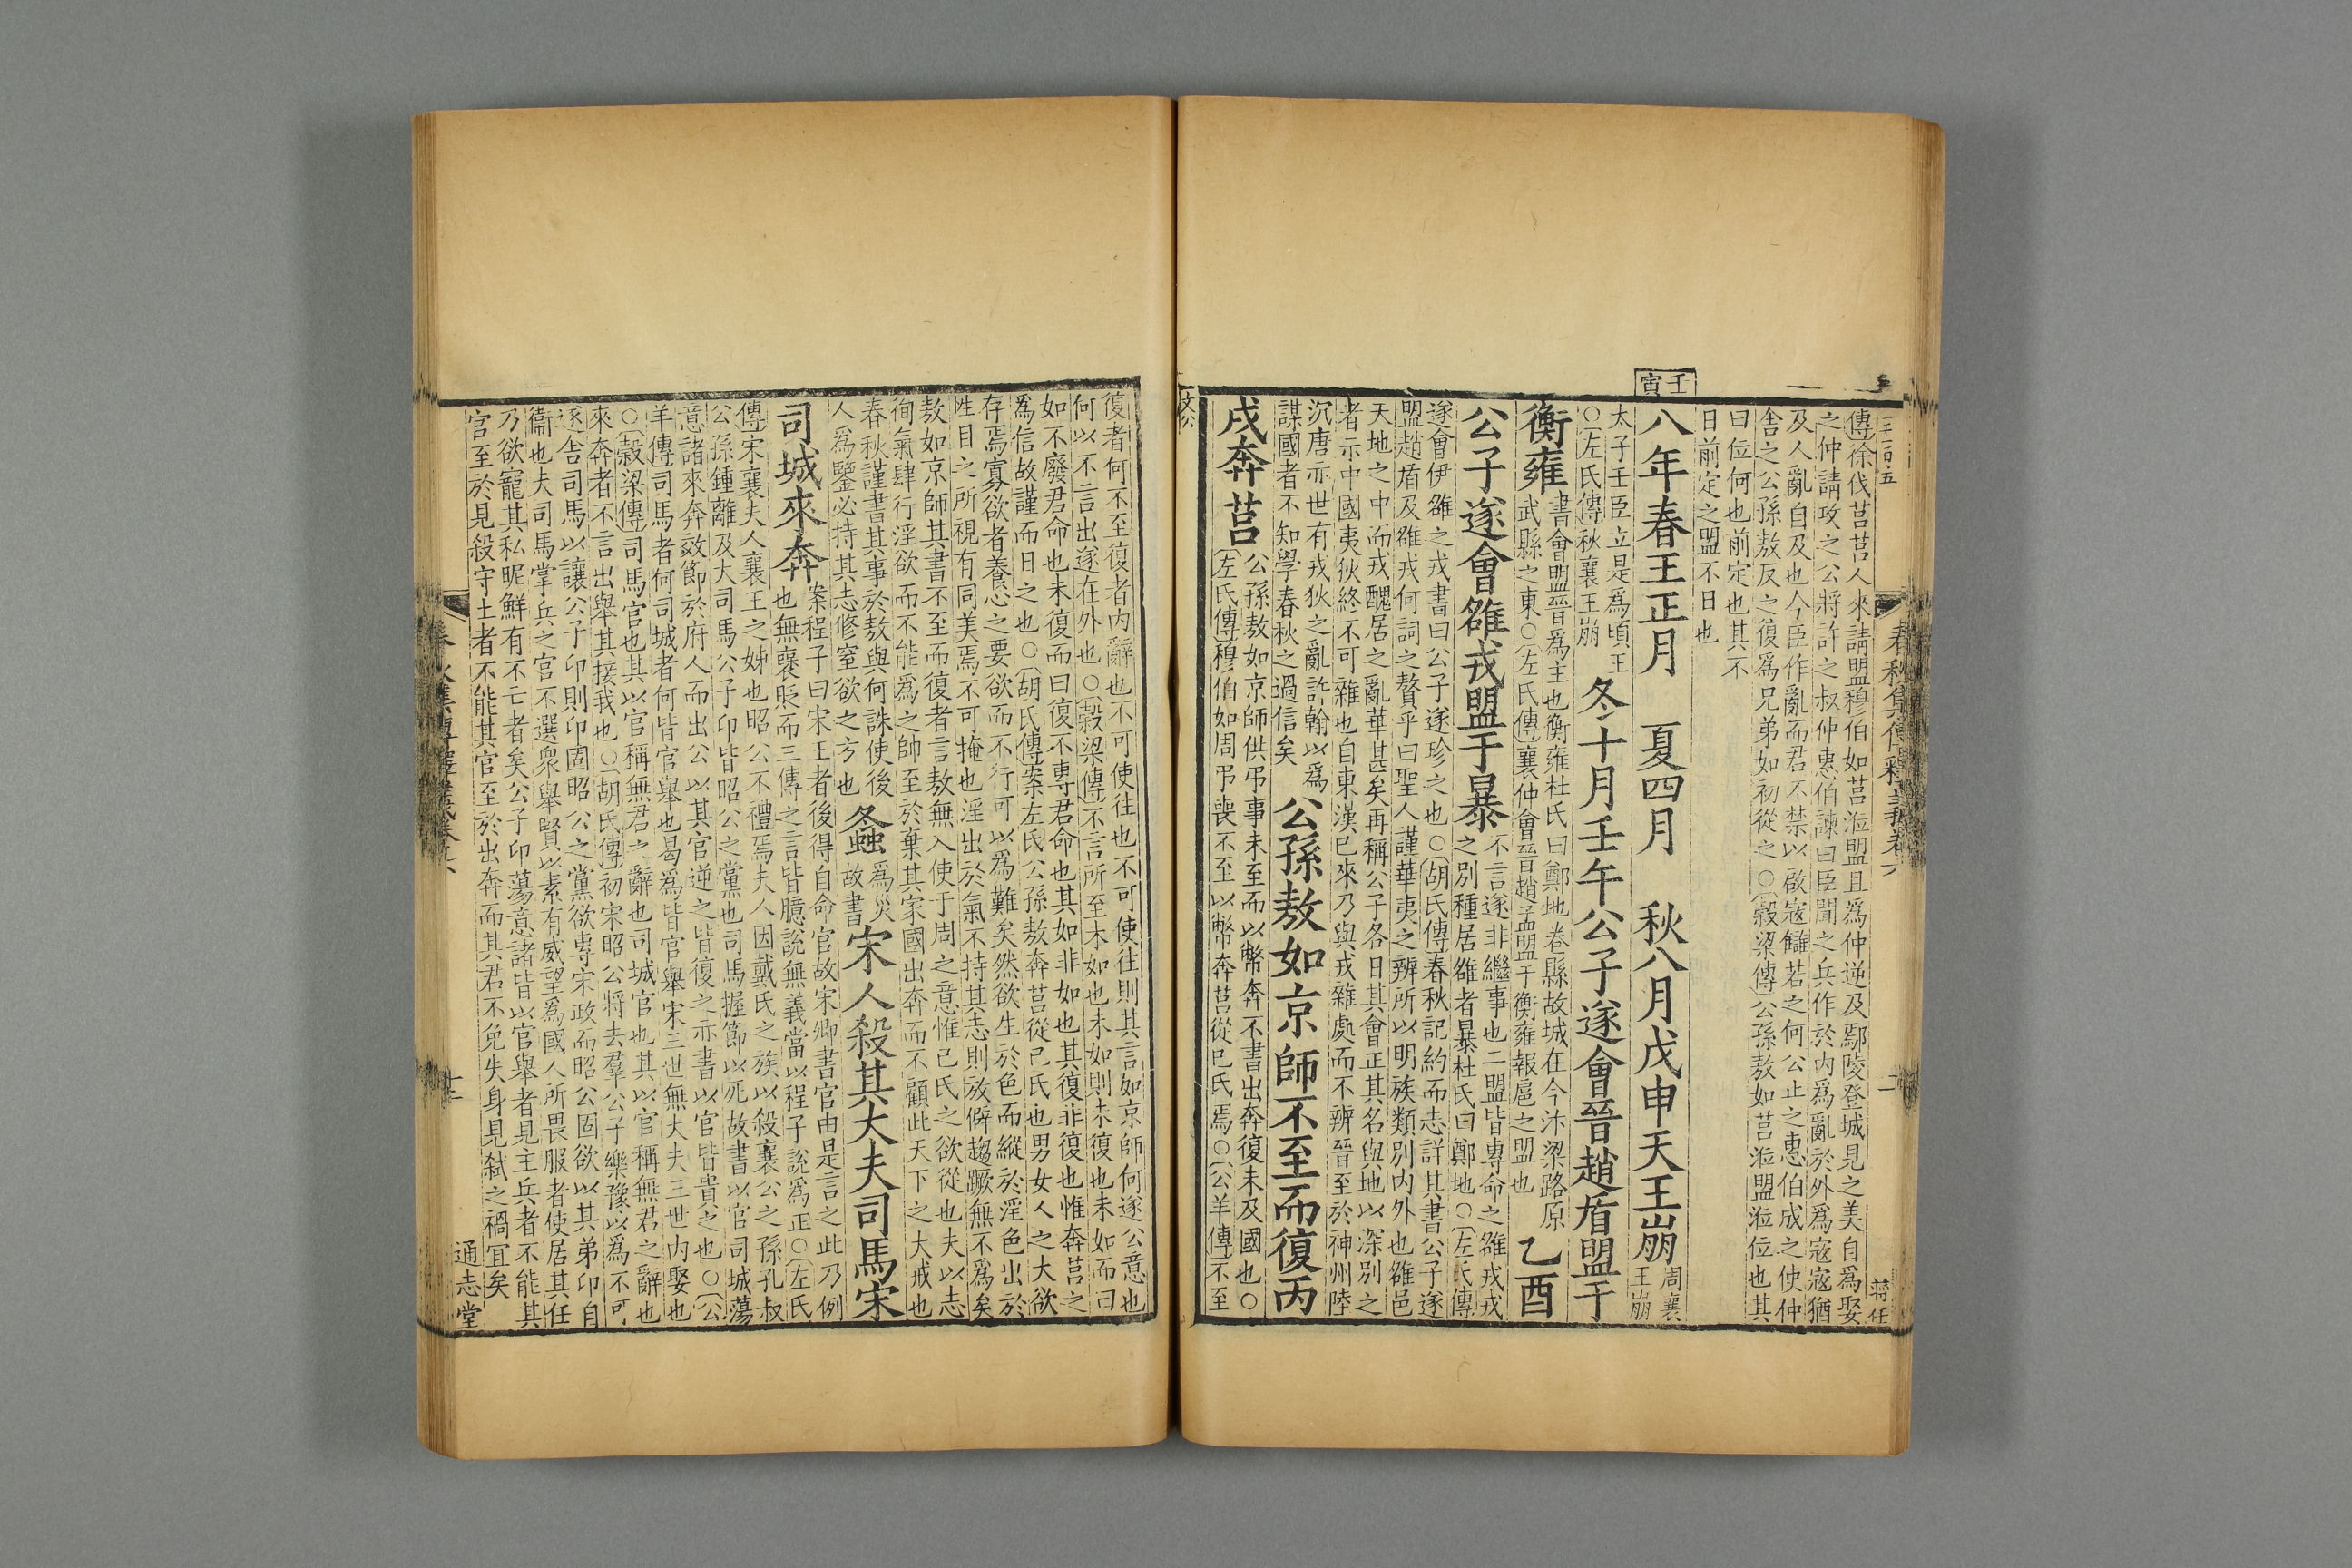 三百五
春秋集傳釋義卷六
蔣任
傳徐伐莒莒人來請盟穆伯如莒涖盟且爲仲逆及鄢陵登城見之美自爲娶
之仲請攻之公將許之叔仲惠伯諫曰臣聞之兵作於內爲亂於外爲寇寇猶
及人亂自及也今臣作亂而君不禁以啟寇讎若之何公止之惠伯成之使仲
舍之公孫敖反之復爲兄弟如初從之○穀梁傳公孫敖如莒涖盟涖位也其
曰位何也前定也其不
日前定之盟不日也
壬寅
八年春王正月　夏四月　秋八月戊申天王崩
周襄
王崩
太子壬臣立是爲頃王
○左氏傳秋襄王崩
冬十月壬午公子遂會晉趙盾盟于
衡雍
書會盟晉爲主也衡雍杜氏曰鄭地卷縣故城在今汴梁路原
武縣之東○左氏傳襄仲會晉趙孟盟于衡雍報扈之盟也
乙酉
公子遂會雒戎盟于暴
不言遂非繼事也二盟皆專命之雒戎戎
之別種居雒者暴杜氏曰鄭地○左氏傳
遂會伊雒之戎書曰公子遂珍之也○胡氏傳春秋記約而志詳其書公子遂
盟趙盾及雒戎何詞之贅乎曰聖人謹華夷之辨所以明族類別內外也雒邑
天地之中而戎醜居之亂華甚矣再稱公子各日其會正其名與地以深別之
者示中國夷狄終不可雜也自東漢已來乃與戎雜處而不辨晉至於神州陸
沉唐亦世有戎狄之亂許翰以爲
謀國者不知學春秋之過信矣
公孫敖如京師不至而復丙
戌奔莒
公孫敖如京師供弔事未至而以幣奔不書出奔復未及國也○
左氏傳穆伯如周弔喪不至以幣奔莒從己氏焉○公羊傳不至
文公
復者何不至復者內辭也不可使往也不可使往則其言如京師何遂公意也
何以不言出遂在外也○穀梁傳不言所至未如也未如則未復也未如而曰
如不廢君命也未復而曰復不專君命也其如非如也其復非復也惟奔莒之
爲信故謹而日之也○胡氏傳案左氏公孫敖奔莒從己氏也男女人之大欲
存焉寡欲者養心之要欲而不行可以爲難矣然欲生於色而縱於淫色出於
性目之所視有同美焉不可掩也淫出於氣不持其志則放僻趨蹶無不爲矣
敖如京師其書不至而復者言敖無入使于周之意惟己氏之欲從也夫以志
徇氣肆行淫欲而不能爲之帥至於棄其家國出奔而不顧此天下之大戒也
春秋謹書其事於敖與何誅使後
人爲鑒必持其志修窒欲之方也
螽
爲災
故書
宋人殺其大夫司馬宋
司城來奔
案程子曰宋王者後得自命官故宋卿書官由是言之此乃例
也無襃貶而三傳之言皆臆說無義當以程子說爲正○左氏
傳宋襄夫人襄王之姊也昭公不禮焉夫人因戴氏之族以殺襄公之孫孔叔
公孫鍾離及大司馬公子卬皆昭公之黨也司馬握節以死故書以官司城蕩
意諸來奔效節於府人而出公以其官逆之皆復之亦書以官皆貴之也○公
羊傳司馬者何司城者何皆官舉也曷爲皆官舉宋三世無大夫三世內娶也
○穀梁傳司馬官也其以官稱無君之辭也司城官也其以官稱無君之辭也
來奔者不言出舉其接我也○胡氏傳初宋昭公將去羣公子樂豫以爲不可
遂舍司馬以讓公子卬則卬固昭公之黨欲專宋政而昭公固欲以其弟卬自
衞也夫司馬掌兵之官不選衆舉賢以素有威望爲國人所畏服者使居其任
乃欲寵其私昵鮮有不亡者矣公子卬蕩意諸皆以官舉者見主兵者不能其
官至於見殺守土者不能其官至於出奔而其君不免失身見弑之禍宜矣
春秋集傳釋義卷六
十二
通志堂